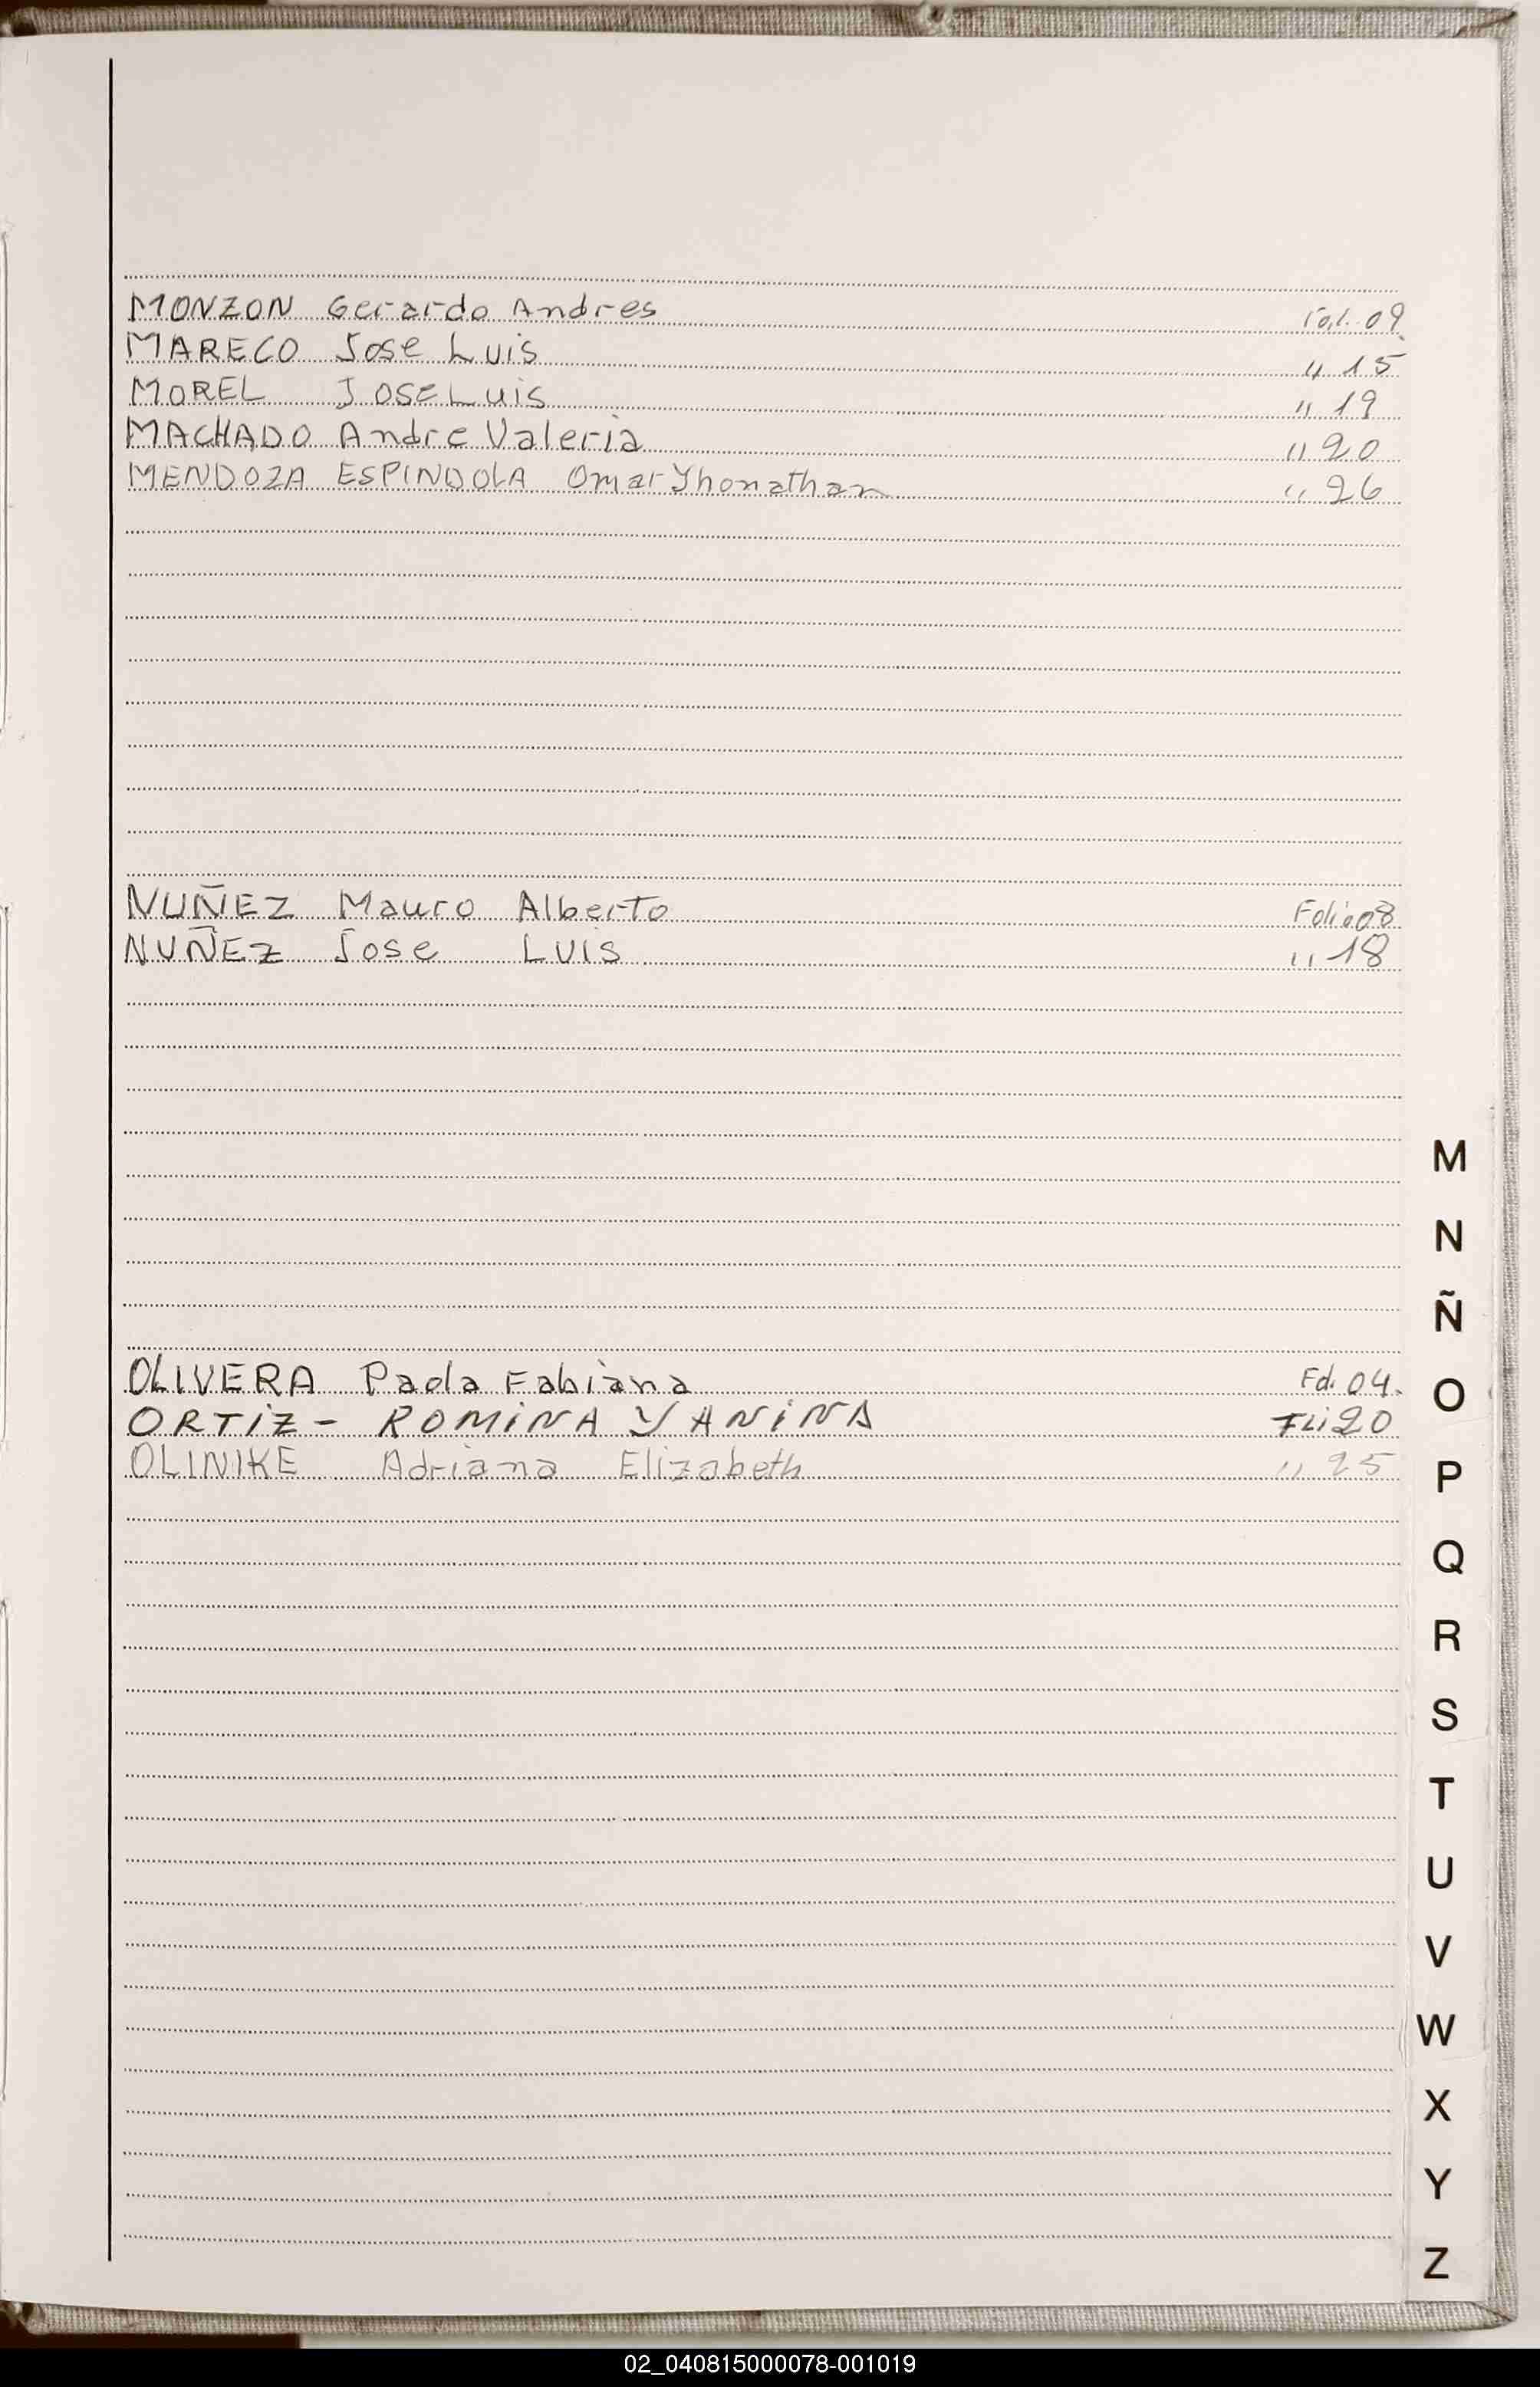 MONZON Gerardo Andres Fol. 09
MARECO Jose Luis " 15
MOREL Jose Luis " 19
MACHADO Andre Valeria " 20
MENDOZA ESPINDOLA Omar Yhonathan " 26
NUÑEZ Mauro Alberto Folio 08
NUÑEZ Jose Luis " 18
M
N
Ñ
OLIVERA Paola Fabiana Fol. 04.
O
ORTIZ - ROMINA YANINA FLi 20
OLINIKE Adriana Elizabeth " 25
P
Q
R
S
T
U
V
W
X
Y
Z
02_040815000078-001019